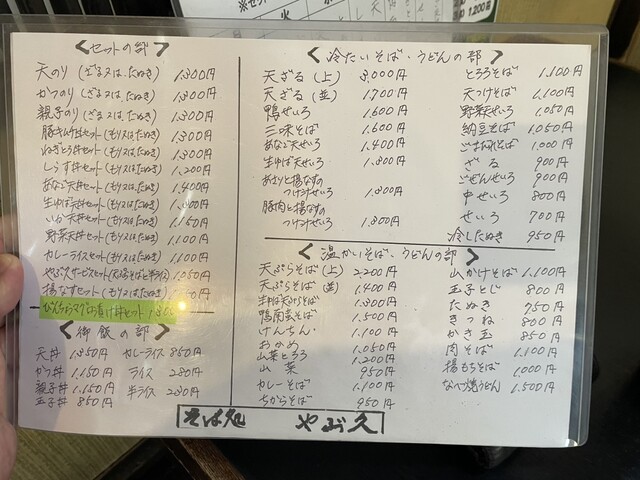 ＜セットの部＞
天のり（ざる又は、たぬき） 1.300円
かつのり（ざる又は、たぬき） 1.300円
親子のり（ざる又は、たぬき） 1.300円
豚キムチ丼セット（もり又は、たぬき） 1.300円
ねぎとろ丼セット（もり又は、たぬき） 1.300円
しらす丼セット（もり又は、たぬき） 1.200円
あなご天丼セット（もり又は、たぬき） 1.400円
生ゆば天丼セット（もり又は、たぬき）
いか天丼セット（もり又は、たぬき） 1.150円
野菜天丼セット（もり又は、たぬき） 1.100円
カレーライスセット（もり又は、たぬき） 1.100円
やぶ久サービスセット 1.050円
揚なすセット（もり又は、たぬき）
びんちょうマグロお漬け丼セット
＜御飯の部＞
天丼 1.350円 カレーライス 850円
かつ丼 1.150円 ライス 280円
親子丼 1.150円 半ライス 230円
玉子丼 850円
＜冷たいそば・うどんの部＞
天ざる（上） 2,000円
天ざる（並） 1700円
鴨せいろ 1.600円
三味そば 1.600円
あなご天せいろ 1.400円
生ゆば天せいろ 1.300円
あさりと揚なすの
つけ汁せいろ 1.300円
豚肉と揚なすの
つけ汁せいろ 1.300円
とろろそば 1.100円
天つけそば 1,100円
野菜天せいろ 1.050円
納豆そば 1.050円
ごまだれそば 1.000円
ざる 900円
ごぜんせいろ 900円
中せいろ 800円
せいろ 700円
冷したぬき 950円
＜温かいそば・うどんの部＞
天ぷらそば（上） 2,200円
天ぷらそば（並） 1.400円
生ゆば天そば 1.300円
鴨南蛮そば 1.500円
けんちん 1.100円
おかめ 1.050円
山菜とろろ 1.200円
山菜 950円
カレーそば 1.100円
ちからそば 950円
山かけそば 1.100円
玉子とじ 800円
たぬき 750円
きつね 800円
かき玉 850円
肉そば 1.100円
揚もちそば 1.000円
なべ焼うどん 1.500円
そば処 やぶ久